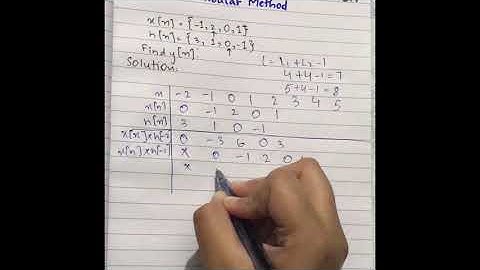 Tabular Method
x[n] = {-1, 2, 0, 1}
h[n] = {3, 1, 0, -1}
Find y[n].
Solution:
L = L₁ + L₂ - 1
4 + 4 - 1 = 7
5 + 4 - 1 = 8
n -2 -1 0 1 2 3 4 5
x[n] 0 -1 2 0 1
h[n] 3 1 0 -1
0 -3 6 0 3
x 0 -1 2 0
x